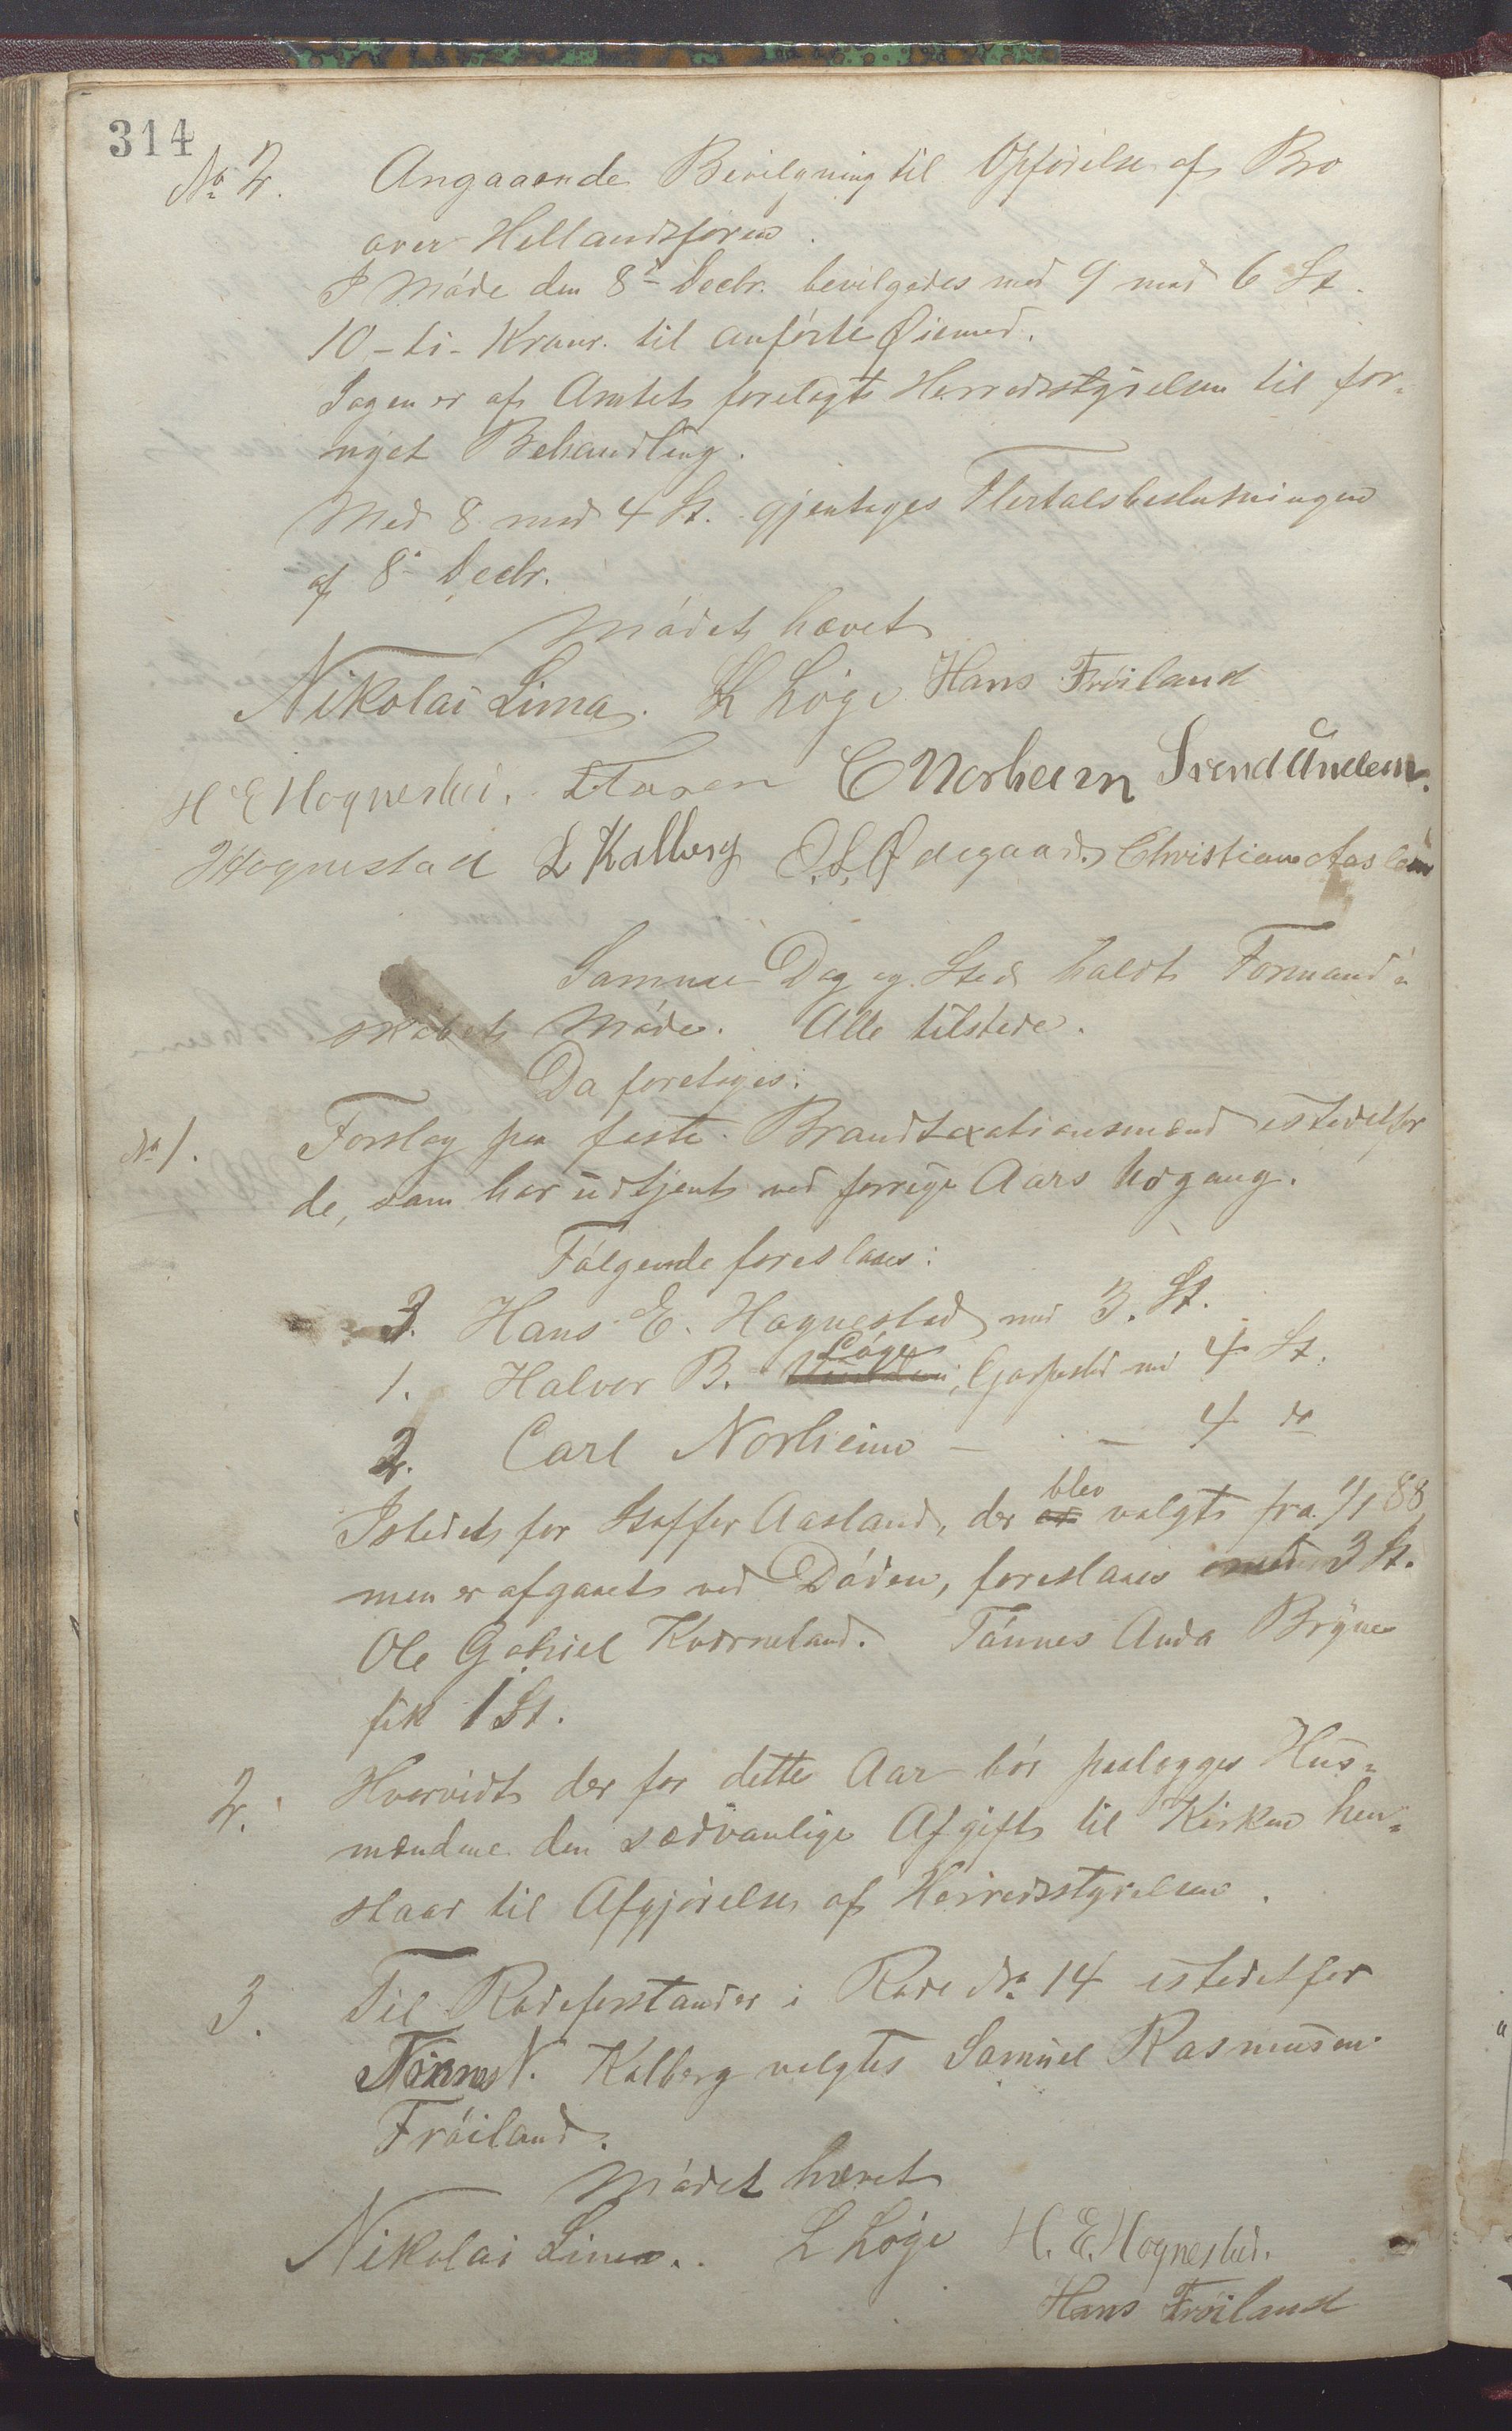 314
No 2. Angaaende Bevilgning til Opførelse af Bro
over Hellandsfoien.
I Møde den 8de Decbr. bevilgedes med 9 mod 6 St.
10 - ti - Kroner. til anførte Øiemed.
Sagen er af Amtet forelagt Herredsstyrelsen til for-
nyet Behandling.
Med 8 mod 4 St. gjentages Flertalsbeslutningen
af 8de Decbr.
Mødet hævet
Nikolai Lima. L Løge Hans Frøiland
H E Hognestad. C Norheim Svend Undem.
Hognestad L Kalberg O. S. Ødegaard. Christian Aasland
Samme Dag og Sted holdt Formand-
skabet Møde. Alle tilstede.
Da foretoges:
No 1. Forslag paa faste Brandtaxationsmænd istedetfor
de, som har udtjent ved forrige Aars Udgang.
Følgende foreslaaes:
3. Hans E. Hognestad med 3. St.
1. Halvor B. Løge, Garpestad med 4 St.
2. Carl Norheim - - 4 do
Istedet for Staffer Aasland, der blev valgt fra 1/1 88,
men er afgaaet ved Døden, foreslaaes med 3 St.
Ole Gabriel Kværneland. Tønnes Anda Bryne
fik 1 St.
2. Hvorvidt der for dette Aar bør paalægges Hus-
mændene den sædvanlige Afgift til Kirken hen-
staar til Afgjørelse af Herredsstyrelsen.
3. Til Rodeforstander i Rode No 14 istedetfor
N. Kalberg valgtes Samuel Rasmussen
Frøiland.
Mødet hævet
Nikolai Lima. L Løge H. E. Hognestad.
Hans Frøiland